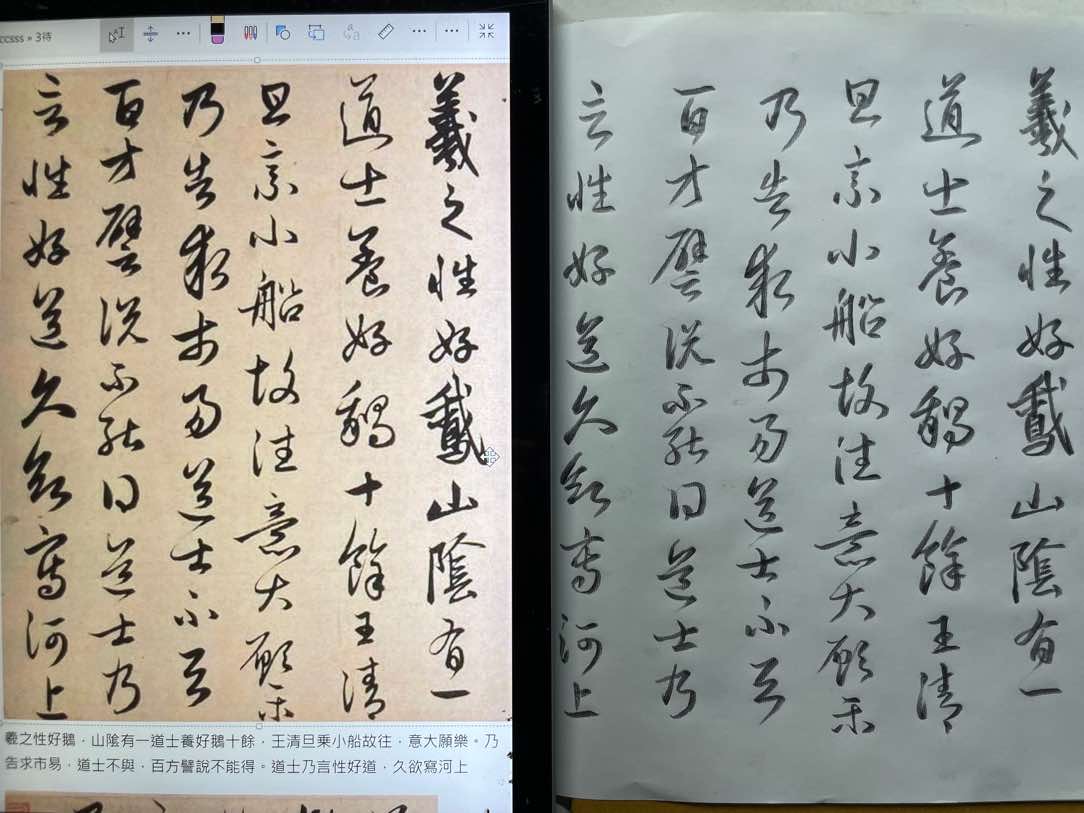 ccsss » 3待
羲之性好鵞山陰有一
道士養好鵝十餘王清
旦乘小船故往意大願樂
乃告求市易道士不與
百方譬說不能得道士乃
言性好道久欲寫河上
羲之性好鵝，山陰有一道士養好鵝十餘，王清旦乘小船故往，意大願樂。乃
告求市易，道士不與，百方譬說不能得。道士乃言性好道，久欲寫河上
羲之性好鵞山陰有一
道士養好鵝十餘王清
旦乘小船故往意大願樂
乃告求市易道士不與
百方譬說不能得道士乃
言性好道久欲寫河上